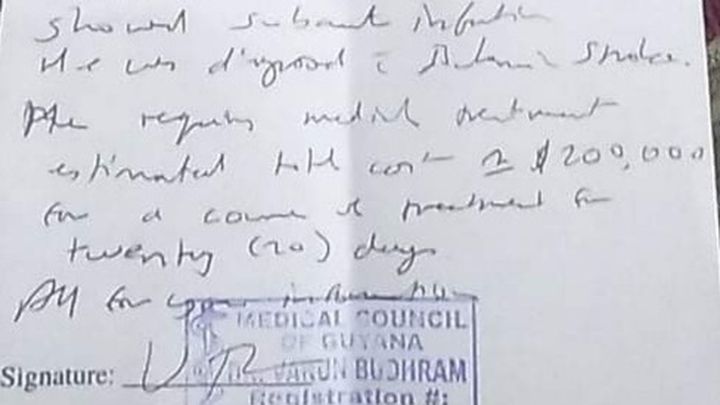 showed subacute infarction
He was diagnosed c̄ Ischemic Stroke.
He requires medical treatment
estimated total cost ≃ $200,000
for a course of treatment for
twenty (20) days
All for your information
MEDICAL COUNCIL
OF GUYANA
DR. VARUN BUDHRAM
Signature:
Registration #: